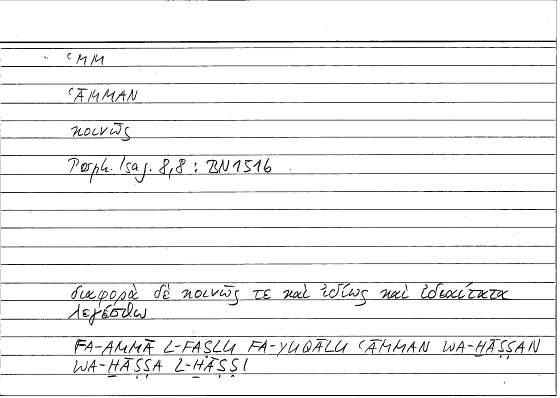 ʿMM
ʿĀMMAN
κοινῶς
Porph. Isag. 8,8 : BN1516
διαφορὰ δὲ κοινῶς τε καὶ ἰδίως καὶ ἰδιαίτατα
λεγέσθω
FA-AMMĀ L-FAṢLU FA-YUQĀLU ʿĀMMAN WA-H̱ĀṢṢAN
WA-H̱ĀṢṢA L-H̱ĀṢṢI